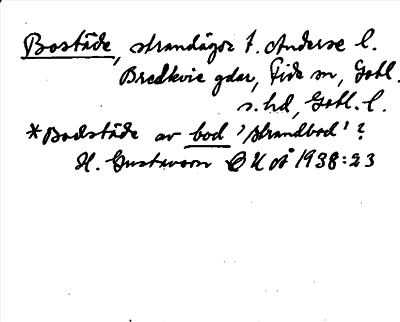 Bostäde, strandägor t. Anderse l.
Bredkvie gdar, Fide sn, Gotl.
s. hd, Gotl. l.
*Bodstäde av bod 'strandbod'?
H. Gustavson OUÅ 1938:23